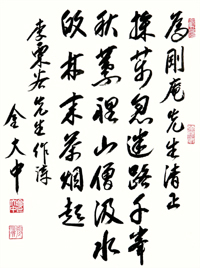 為剛庵先生清正
採葯忽迷路千峯
秋葉裡山僧汲水
皈林末茶烟起
李栗谷先生作詩
金大中